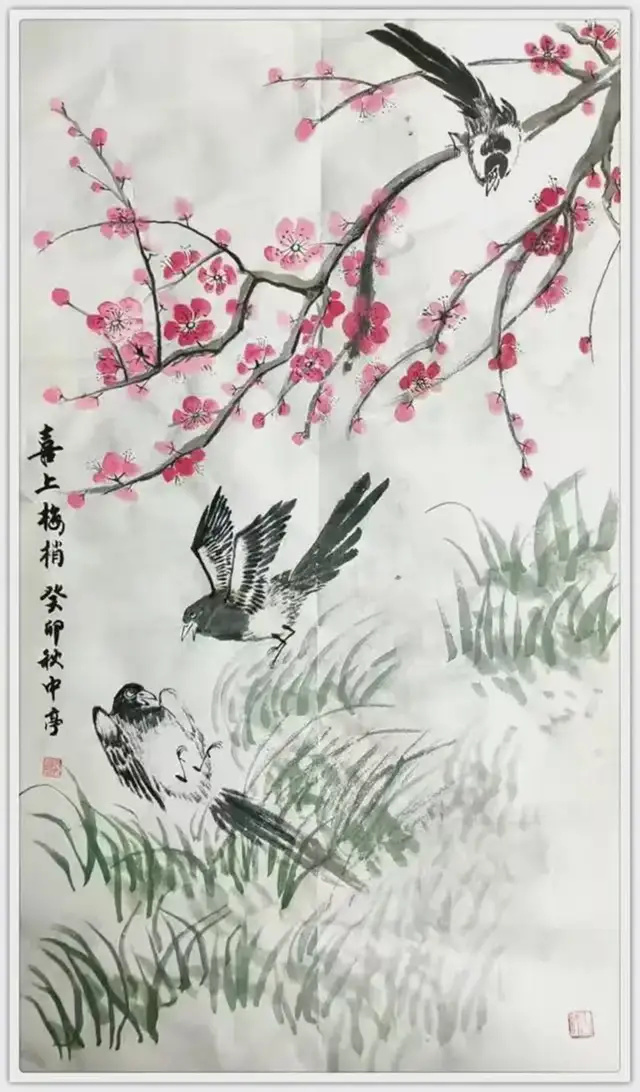 喜上梅梢 癸卯秋中亭